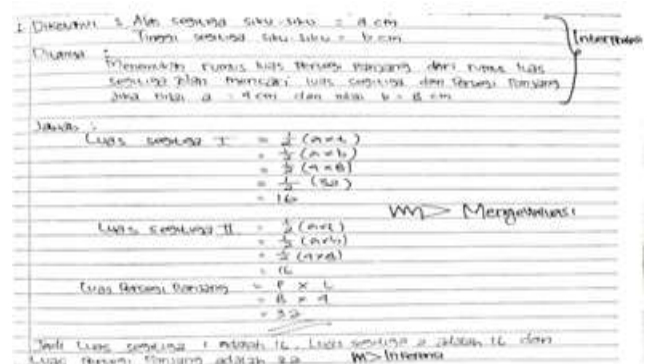 1. Diketahui : Alas segitiga siku-siku = a cm
Tinggi segitiga siku-siku = b cm
Ditanya :
Menemukan rumus luas persegi panjang dari rumus luas
segitiga dan mencari luas segitiga dan Persegi Panjang
Jika nilai a = 4 cm dan nilai b = 8 cm
Interpretasi
Jawab :
Luas segitiga I = 1/2 (a×t)
= 1/2 (a×b)
= 1/2 (4×8)
= 1/2 (32)
= 16
Mengevaluasi
Luas segitiga II = 1/2 (a×t)
= 1/2 (a×b)
= 1/2 (4×8)
= 16
Luas Persegi Panjang = P × L
= 8 × 4
= 32
Jadi Luas segitiga 1 adalah 16, Luas segitiga 2 adalah 16 dan
Luas Persegi Panjang adalah 32
Inferensi